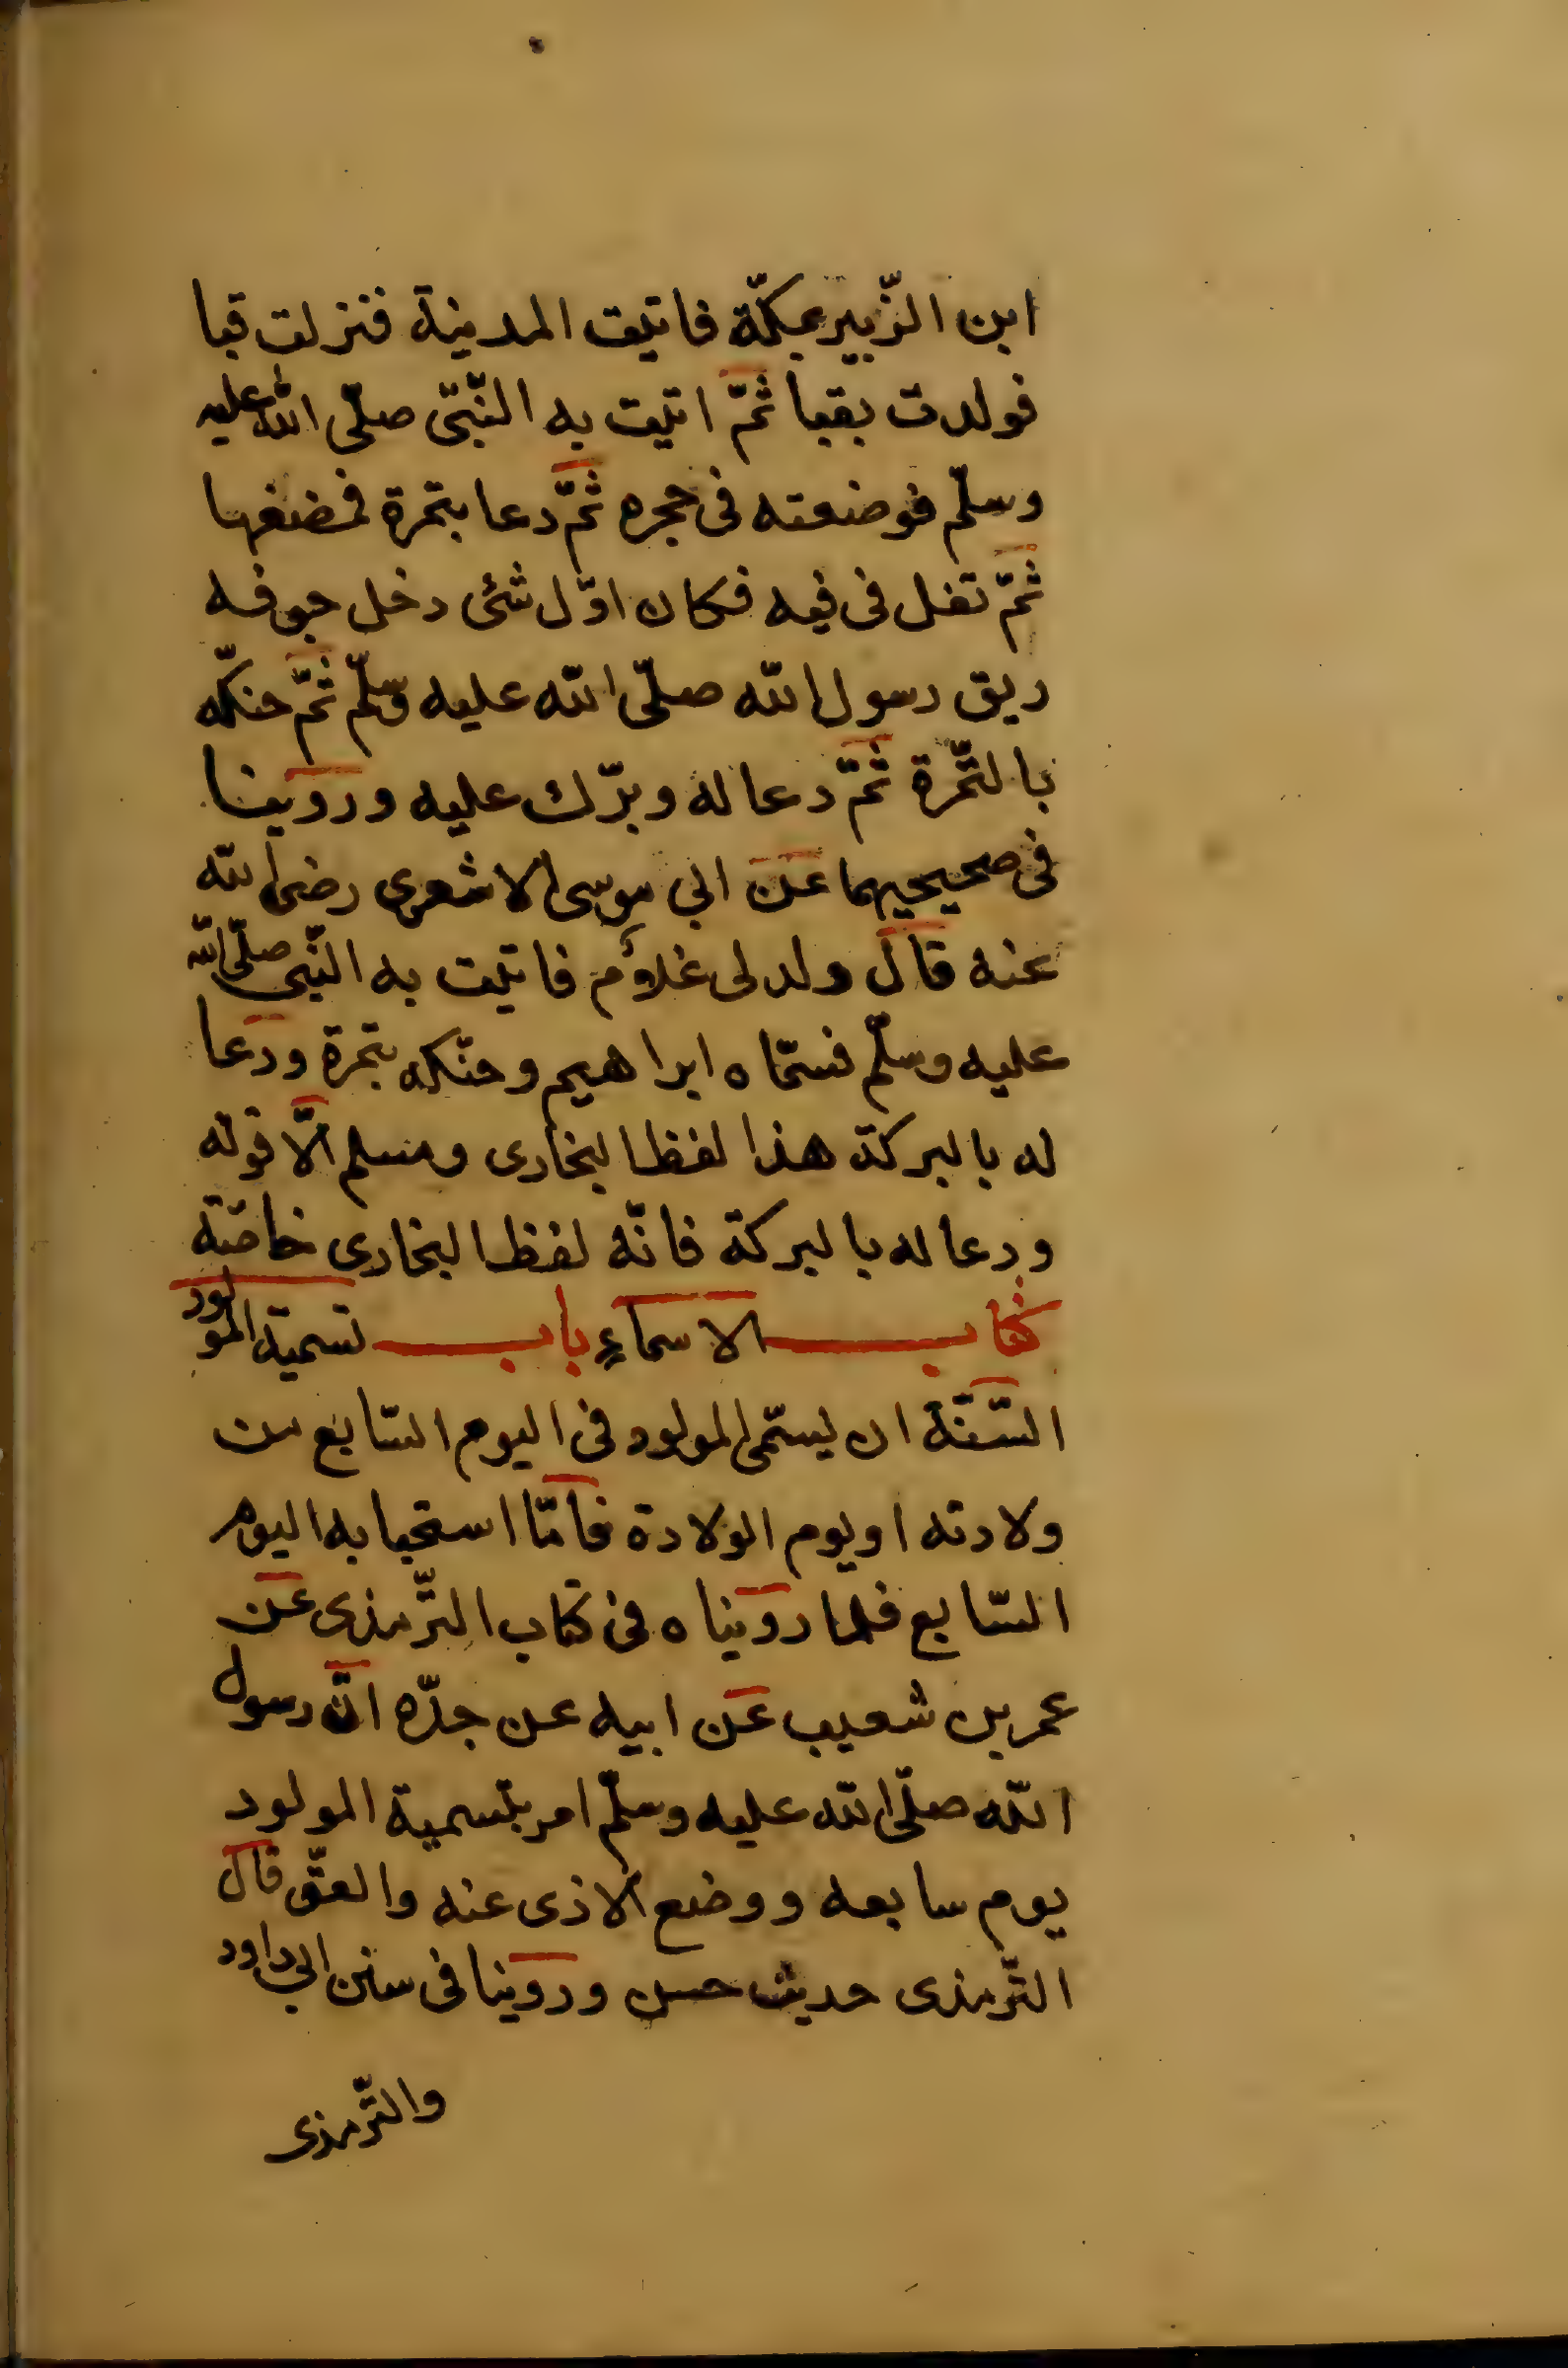 ابن الزّبير بمكّة فاتيت المدينة فنزلت قبا
فولدت بقبا ثمّ اتيت به النّبىّ صلّى الله عليه
وسلّم فوضعته فى حجره ثمّ دعا بتمرة فمضغها
ثمّ تفل فى فيه فكان اوّل شئ دخل جوفه
ريق رسول الله صلّى الله عليه وسلّم ثمّ حنكّه
بالتّمرة ثمّ دعا له وبرّك عليه وروينا
فى صحيحيهما عن ابي موسى الاشعرى رضى الله
عنه قال ولد لى غلام فاتيت به النّبى صلّى الله
عليه وسلّم فسمّاه ابراهيم وحنّكه بتمرة ودعا
له بالبركة هذا لفظ البخارى ومسلم الّا قوله
ودعا له بالبركة فانّه لفظ البخارى خاصّة
كتاب الاسماء باب تسمية المولود
السّنّة ان يسمّى المولود فى اليوم السّابع من
ولادته او يوم الولادة فامّا استحبابه اليوم
السّابع فلما رويناه فى كتاب التّرمذى عن
عمر بن شعيب عن ابيه عن جدّه انّ رسول
الله صلّى الله عليه وسلّم امر بتسمية المولود
يوم سابعه ووضع الاذى عنه والعقّ قال
التّرمذى حديث حسن وروينا فى سنن ابي داود
والتّرمذى